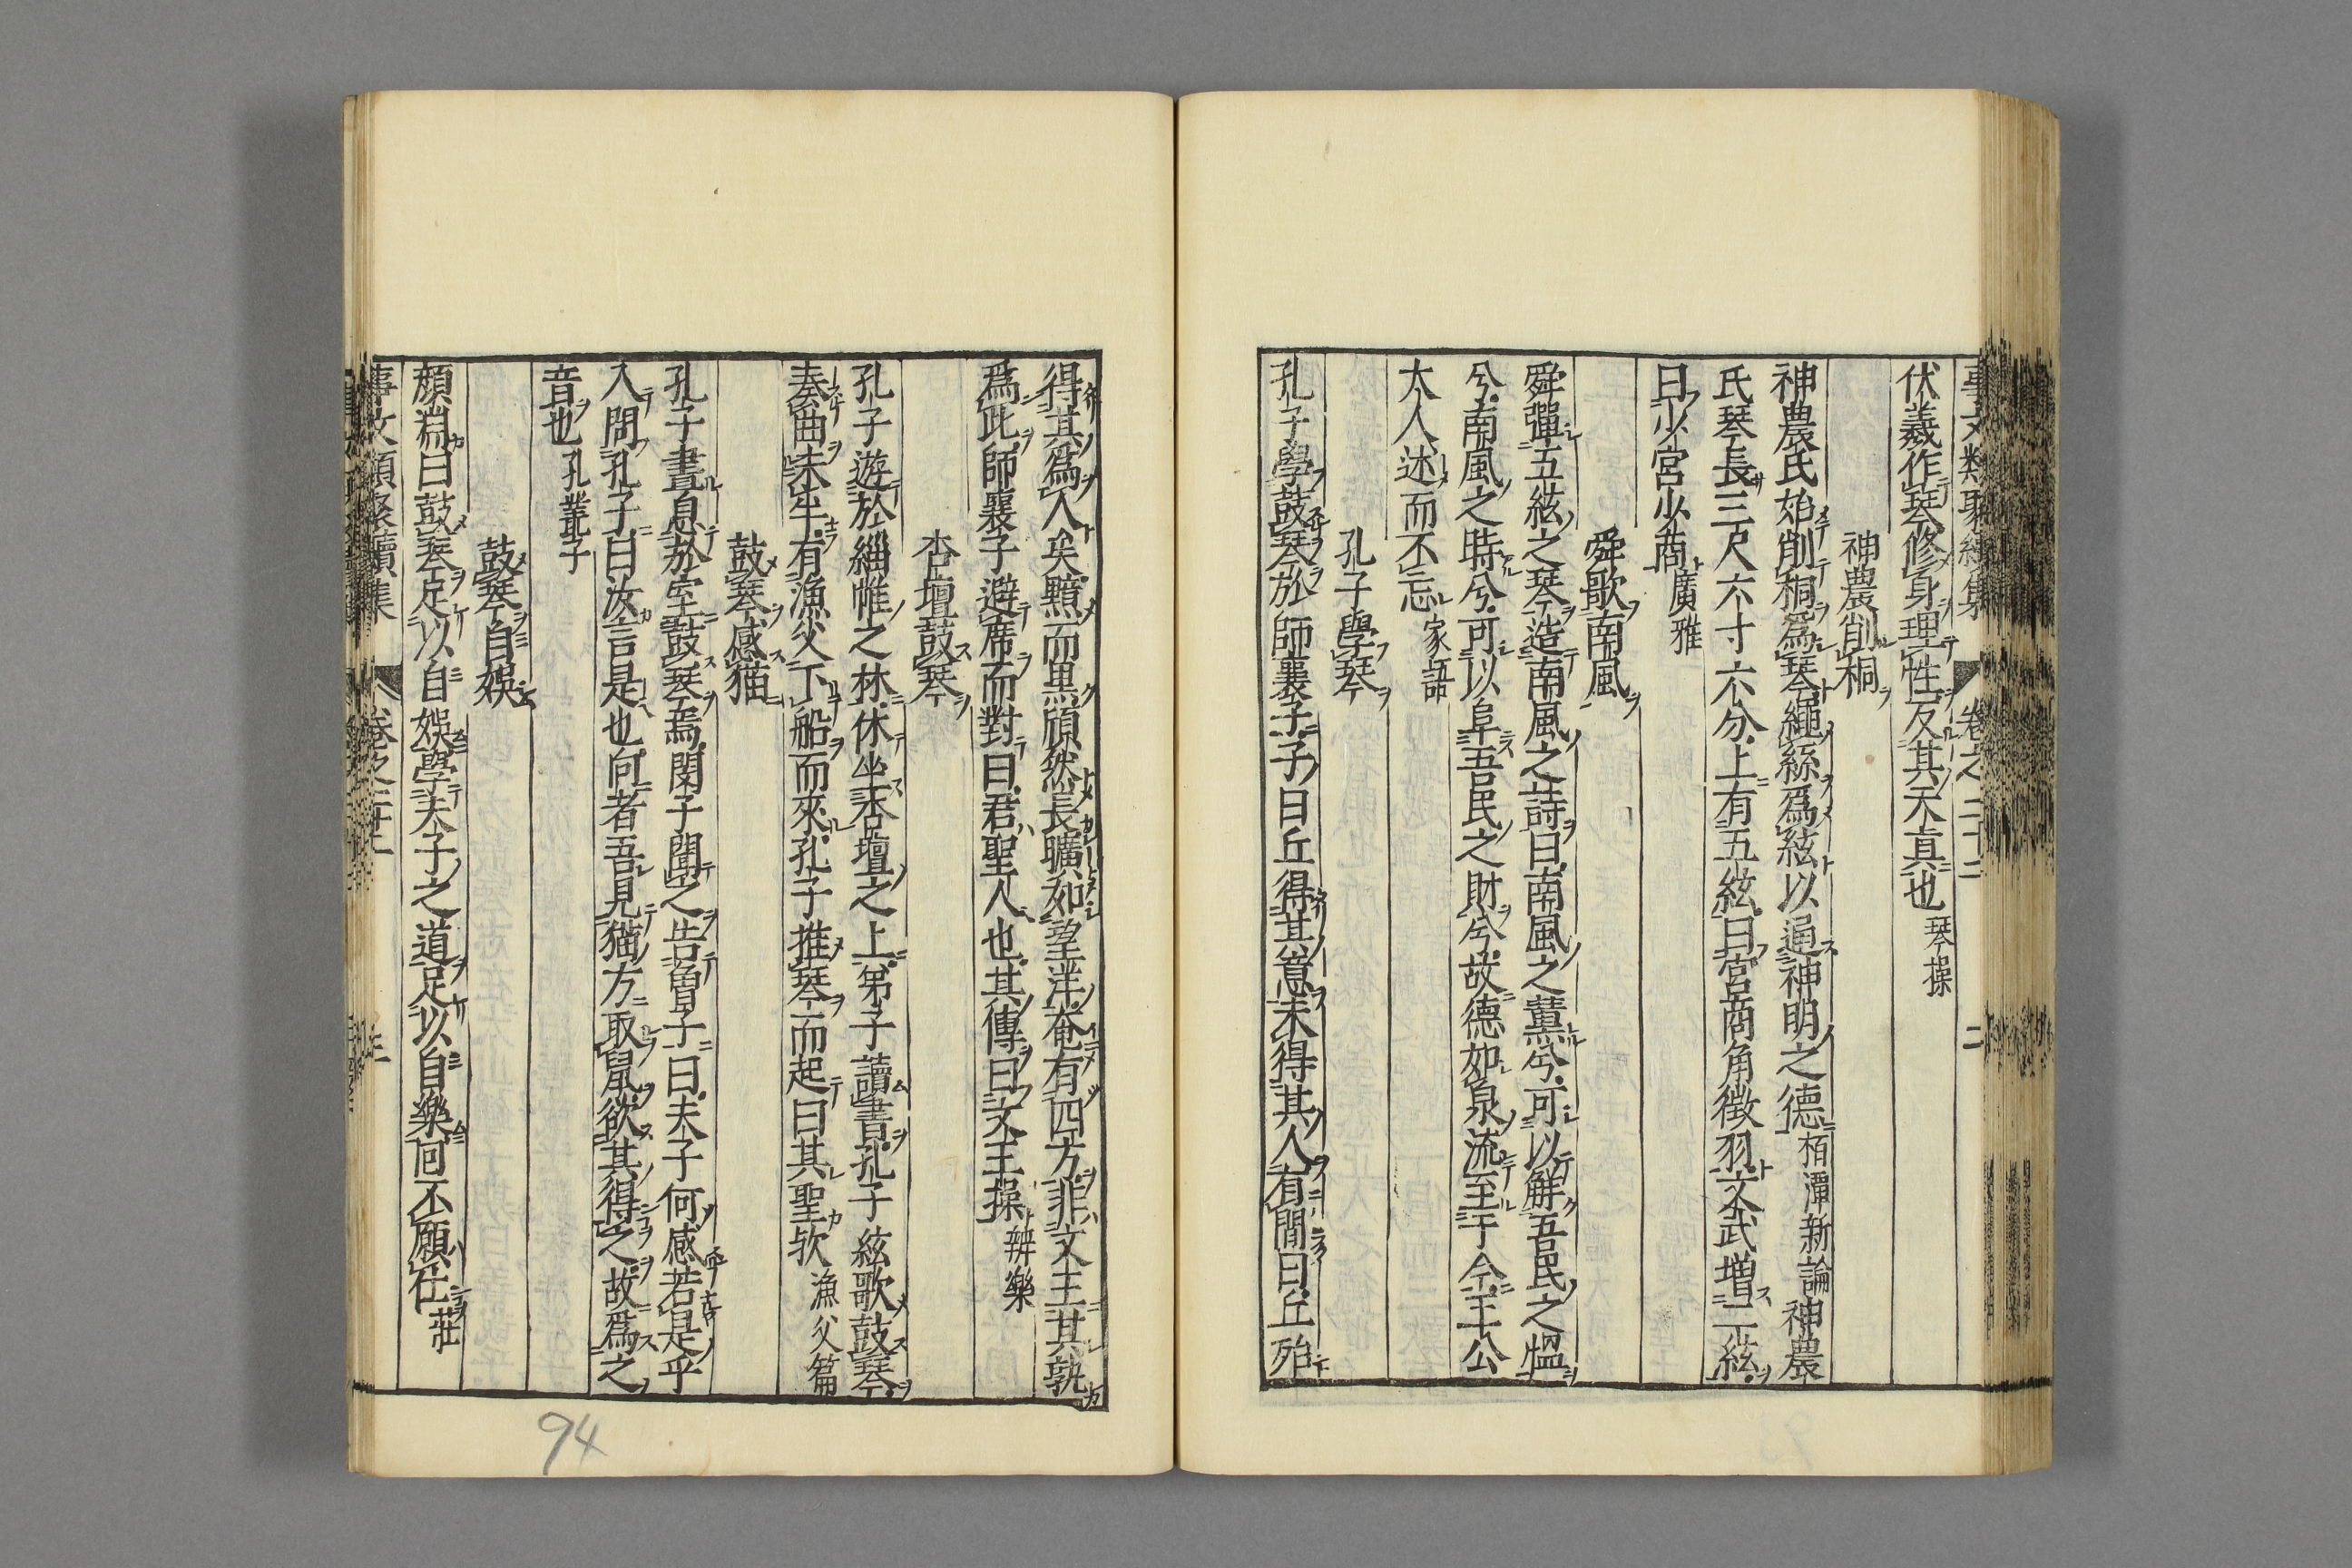 事文類聚續集 卷之二十二 二
伏羲作琴修身理性反其天真也 琴操
神農削桐
神農氏始削桐爲琴繩絲爲絃以通神明之德 栢潭新論 神農
氏琴長三尺六寸六分上有五絃曰宮商角徵羽文武增二絃
曰少宮少商 廣雅
舜歌南風
舜彈五絃之琴造南風之詩曰南風之薫兮可以解吾民之慍
兮南風之時兮可以阜吾民之財兮故德如泉流至于今王公
大人述而不忘 家語
孔子學琴
孔子學鼓琴於師襄子子曰丘得其意未得其人有間曰丘殆
得其爲人矣黮而黒頎然長曠如望洋奄有四方非文王其孰
爲此師襄子避席而對曰君聖人也其傳曰文王操 辨樂
杏壇鼓琴
孔子遊於緇帷之林休坐杏壇之上弟子讀書孔子絃歌鼓琴
奏曲未半有漁父下船而來孔子推琴而起曰其聖欤 漁父篇
鼓琴感猫
孔子晝息於室鼓琴焉閔子聞之告曽子曰夫子何感若是乎
入問孔子曰汝言是也向者吾見猫方取鼠欲其得之故爲之
音也 孔叢子
鼓琴自娯
顔淵曰鼓琴足以自娯學夫子之道足以自樂囘不願仕 莊
事文類聚續集 卷之二十二 三
94